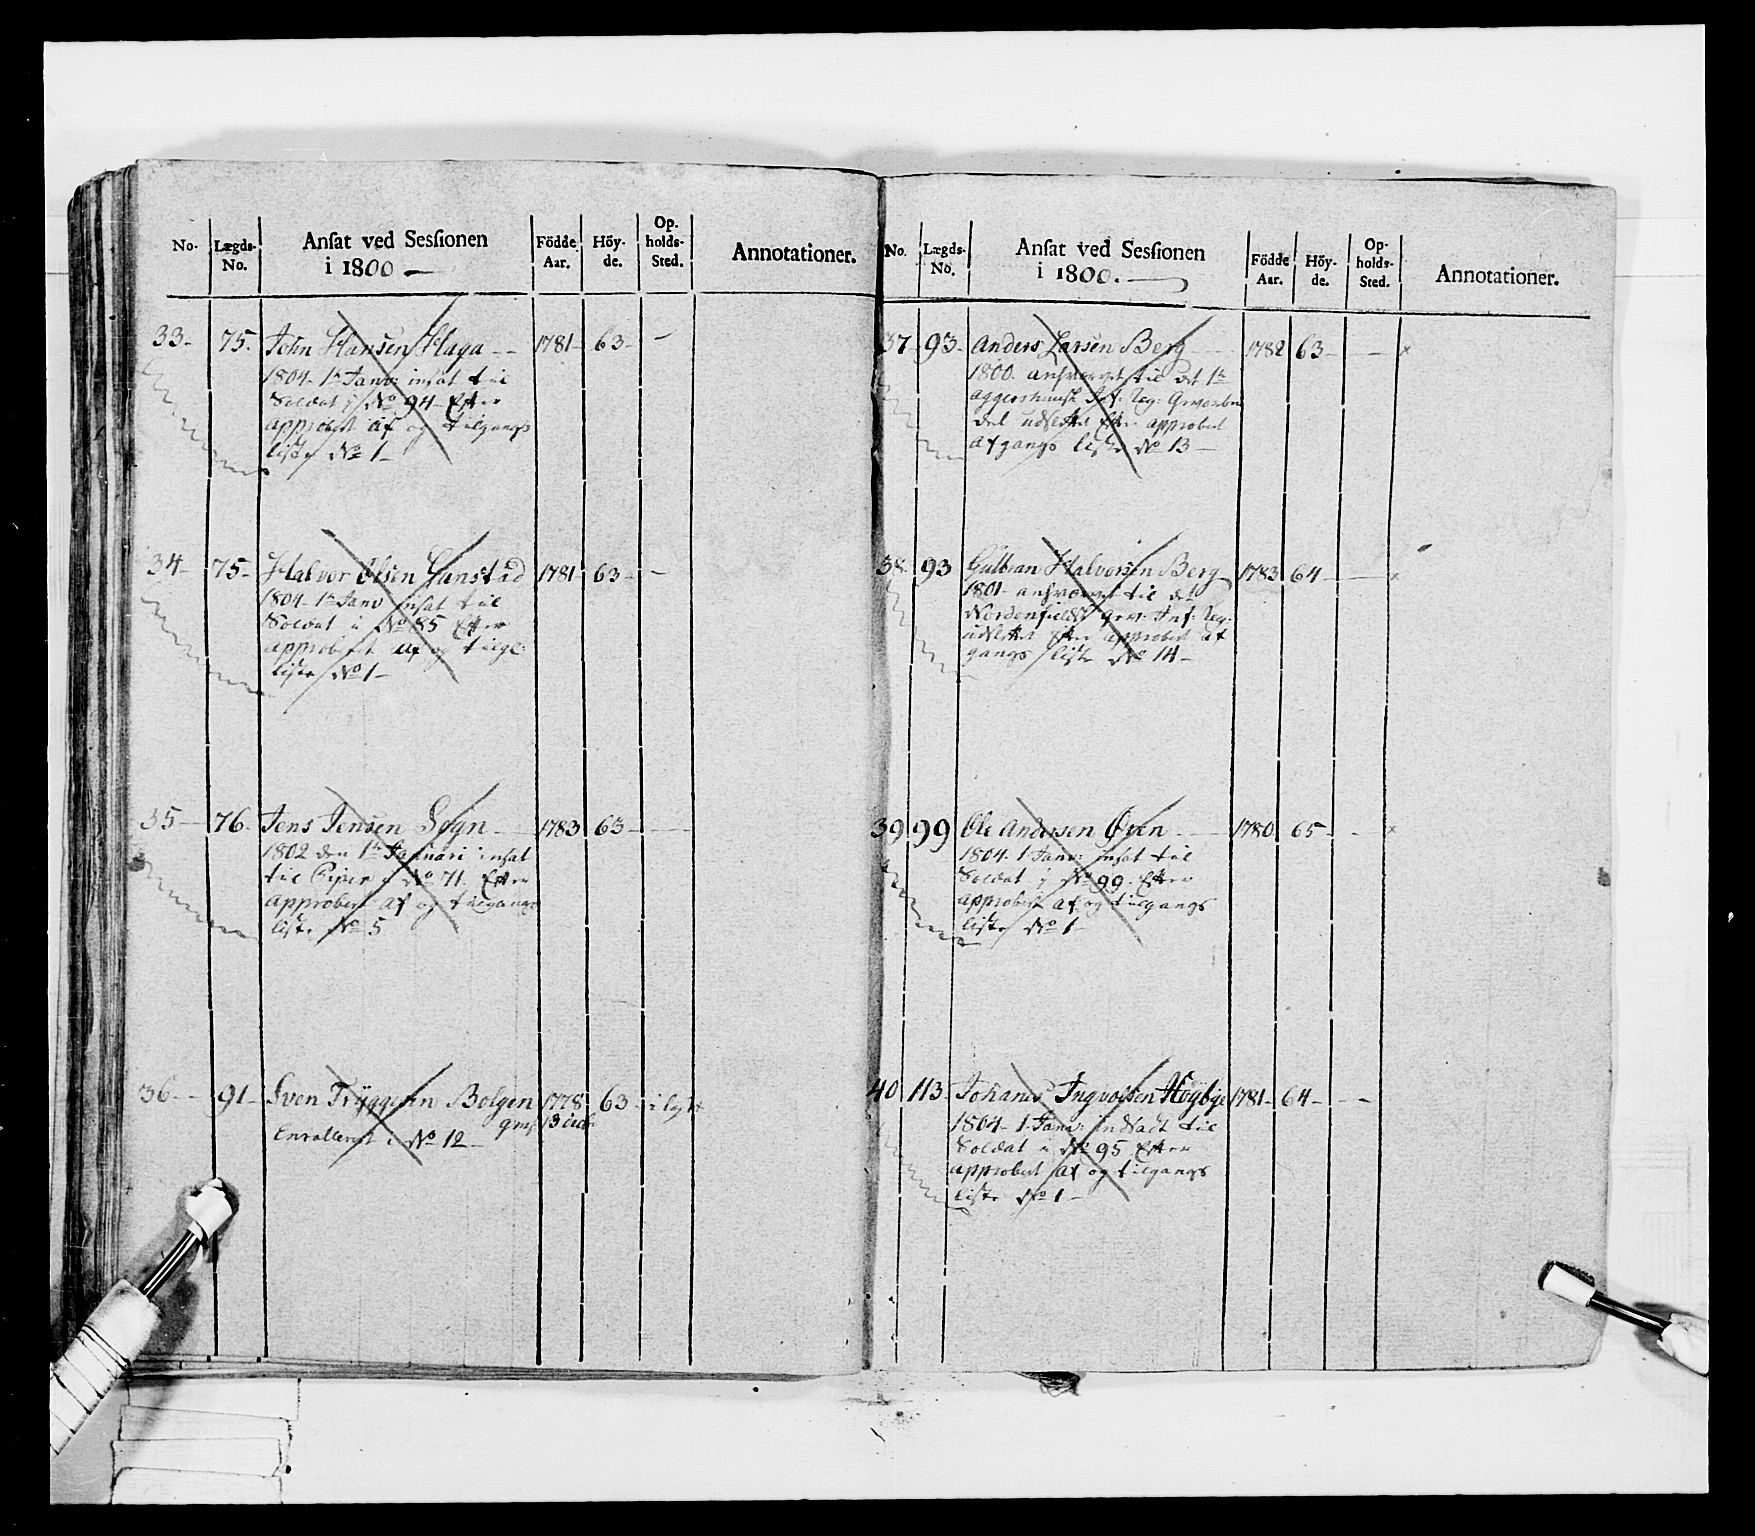 No. Lægds-No. Ansat ved Sessionen i 1800 — Födde Aar. Höyde. Opholds-Sted. Annotationer.
33- 75. John Hansen Haga - - 1781- 63- -
1804- 1te Janv: insat til
Soldat i No 94- Efter
approbert af og tilgangs
liste No 1-
34- 75- Halvor Olsen 1781- 63- -
1804- 1te Janv insat til
Soldat i No 85 Efter
approbert af og tilgs:
liste No 1-
35- 76- Jens Jensen Sogn - 1783 63- -
1802 den 1te Januari insat
til Piper i No 71. Efter
approbert af og tilgangs
liste No 5
36- - 91- Sven Tryggesen Bolgen 1778 63-
Enrolleret i No 12-
No. Lægds-No. Ansat ved Sessionen i 1800. — Födde Aar. Höyde. Opholds-Sted. Annotationer.
37- 93- Anders Larsen Berg - 1782 63- - x
1800. anhvervet til det 1te
Aggershuusk Inf: Reg: Gevorbne
Deel udslettet Efter approbert
afgangs liste No 13-
38- 93 Gulbran Halvorsen Berg 1783 64- - x
1801- anhvervet til det
Nordenfieldsk gev: Inf: Reg:
udslettet Efter approbert af
gangs liste No 14-
39 99 Ole Andersen Øren - - 1780 65- - x
1804. 1 Janv: insat til
Soldat i No 99. Efter
approbert af og tilgangs
liste No 1-
40 113- Johanes Ingvolsen Høybye 1781- 64- -
1804- 1 Janv: indsadt til
Soldat i No 95 Efter
approbert af og tilgangs
liste No 1-